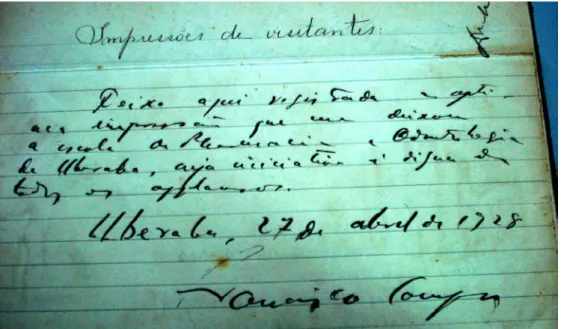 Impressões de visitantes:
Deixo aqui registrada a opti-
ma impressão que me deixou
a escola de Pharmacia e Odontologia
de Uberaba, cuja iniciativa é digna de
todos os applausos.
Uberaba, 27 de abril de 1928
Francisco Campos